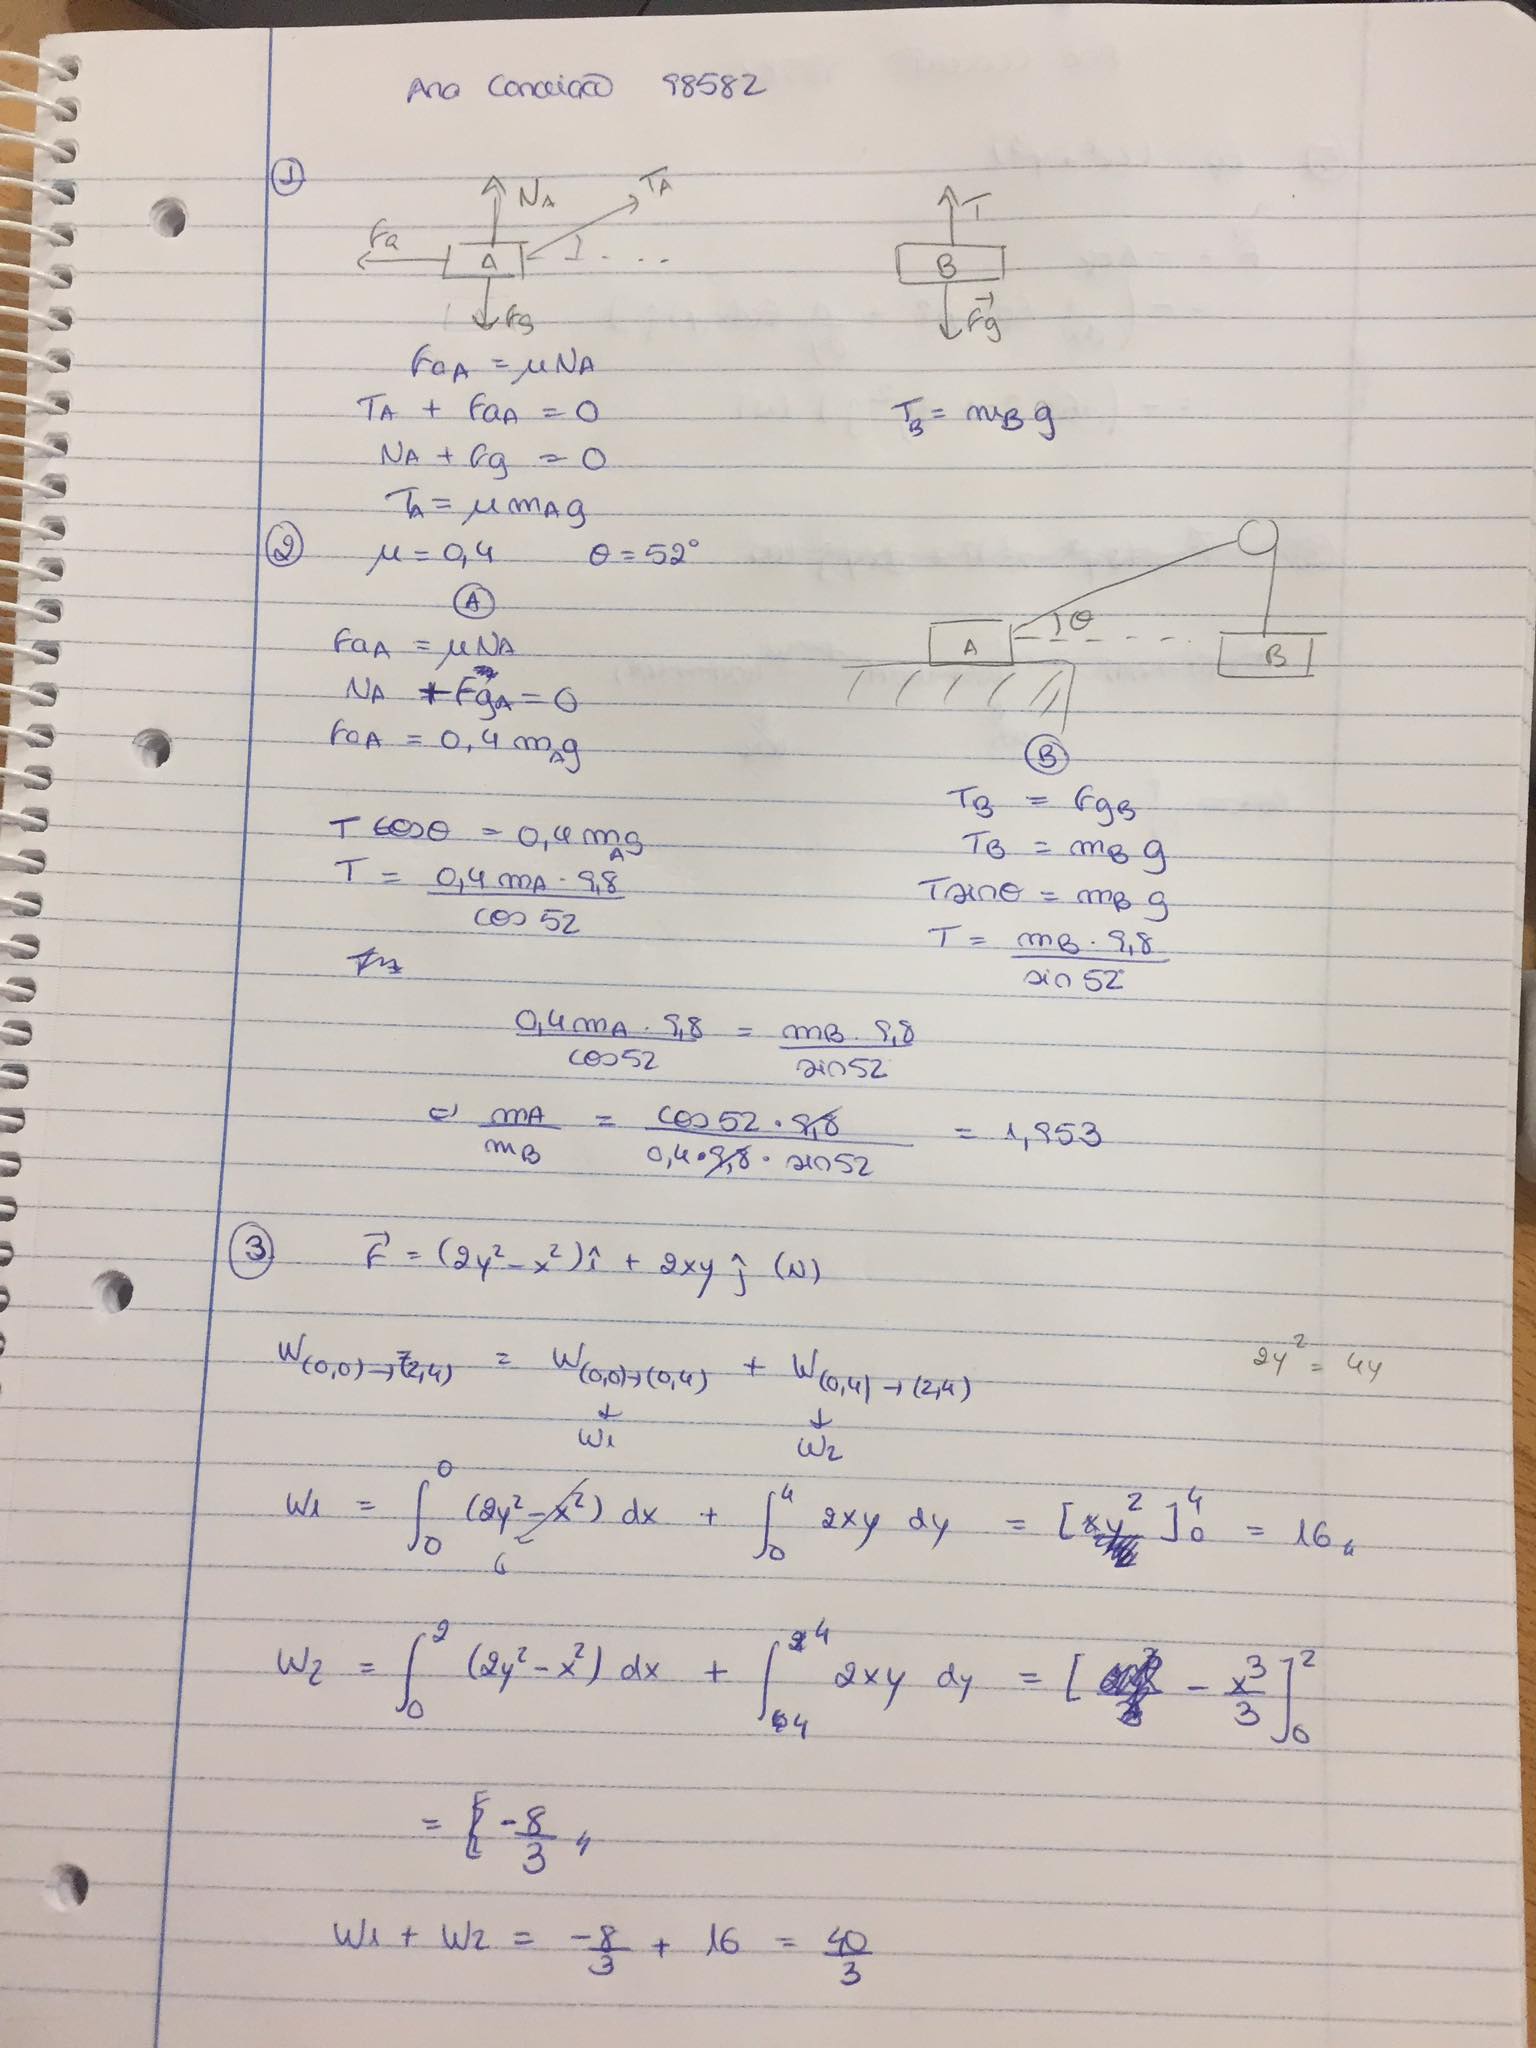 Ana Conceição 98582
①
NA TA
Fa A
Fg
T
B
Fg
FaA = μNA
TA + FaA = 0
NA + Fg = 0
TA = μ mA g
TB = mB g
② μ = 0,4 θ = 52°
A θ B
Ⓐ
FaA = μNA
NA + FgA = 0
FaA = 0,4 mA g
T cosθ = 0,4 mA g
T = 0,4 mA · 9,8 / cos 52
Ⓑ
TB = FgB
TB = mB g
T sinθ = mB g
T = mB · 9,8 / sin 52
0,4 mA · 9,8 / cos 52 = mB · 9,8 / sin 52
⇔ mA / mB = cos 52 · 9,8 / 0,4 · 9,8 · sin 52 = 1,953
③ F = (2y² − x²) î + 2xy ĵ (N)
W(0,0)→(2,4) = W(0,0)→(0,4) + W(0,4)→(2,4)
2y² = 4y
↓ W1 ↓ W2
W1 = ∫₀⁰ (2y² − x²) dx + ∫₀⁴ 2xy dy = [xy²]₀⁴ = 16
W2 = ∫₀² (2y² − x²) dx + ∫₄⁴ 2xy dy = [ − x³/3 ]₀²
= − 8/3
W1 + W2 = −8/3 + 16 = 40/3